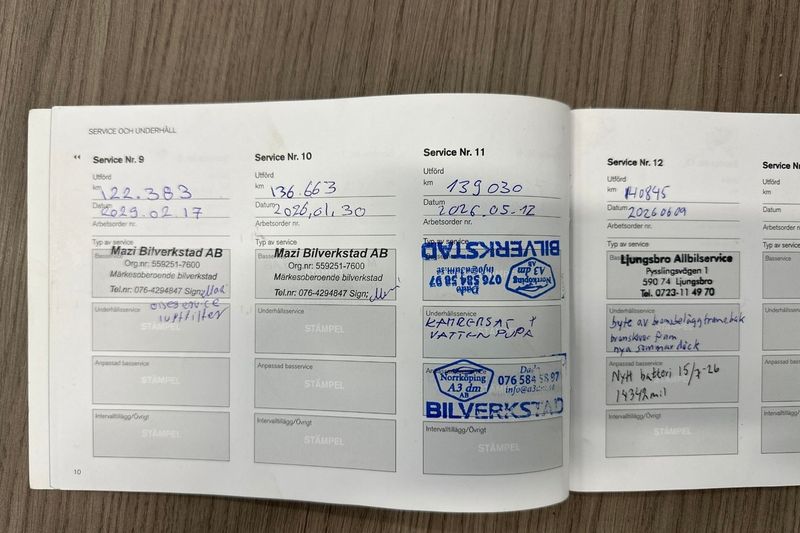 SERVICE OCH UNDERHÅLL
Service Nr. 9
Utförd
km 122.383
Datum 2029.02.17
Arbetsorder nr.
Typ av service
Mazi Bilverkstad AB
Org.nr: 559251-7600
Märkesoberoende bilverkstad
Tel.nr: 076-4294847 Sign:
oljeservice
luftfilter
STÄMPEL
Anpassad basservice
STÄMPEL
Intervalltillägg/Övrigt
STÄMPEL
10
Service Nr. 10
Utförd
km 136.663
Datum 2026,01,30
Arbetsorder nr.
Typ av service
Mazi Bilverkstad AB
Org.nr: 559251-7600
Märkesoberoende bilverkstad
Tel.nr: 076-4294847 Sign:
Underhållsservice
STÄMPEL
Anpassad basservice
STÄMPEL
Intervalltillägg/Övrigt
STÄMPEL
Service Nr. 11
Utförd
km 139030
Datum 2026.05.12
Arbetsorder nr.
Typ av service
BILVERKSTAD
Norrköping
A3 dm
AB
Dado
076 584 58 97
info@a3dm.se
Underhållsservice
KAMREMSAT +
VATTEN PUPA
Norrköping
A3 dm
AB
076 584 58 97
BILVERKSTAD
Intervalltillägg/Övrigt
STÄMPEL
Service Nr. 12
Utförd
km 140845
Datum 20260609
Arbetsorder nr.
Typ av service
Ljungsbro Allbilservice
Pysslingsvägen 1
590 74 Ljungsbro
Tel. 0723-11 49 70
Underhållsservice
byte av bromsbelägg fram+bak
bromsskivor fram
nya sommardäck
Anpassad basservice
Nytt batteri 15/7-26
14342mil
Intervalltillägg/Övrigt
STÄMPEL
Service Nr.
Utförd
km
Datum
Arbetsorder
Typ av service